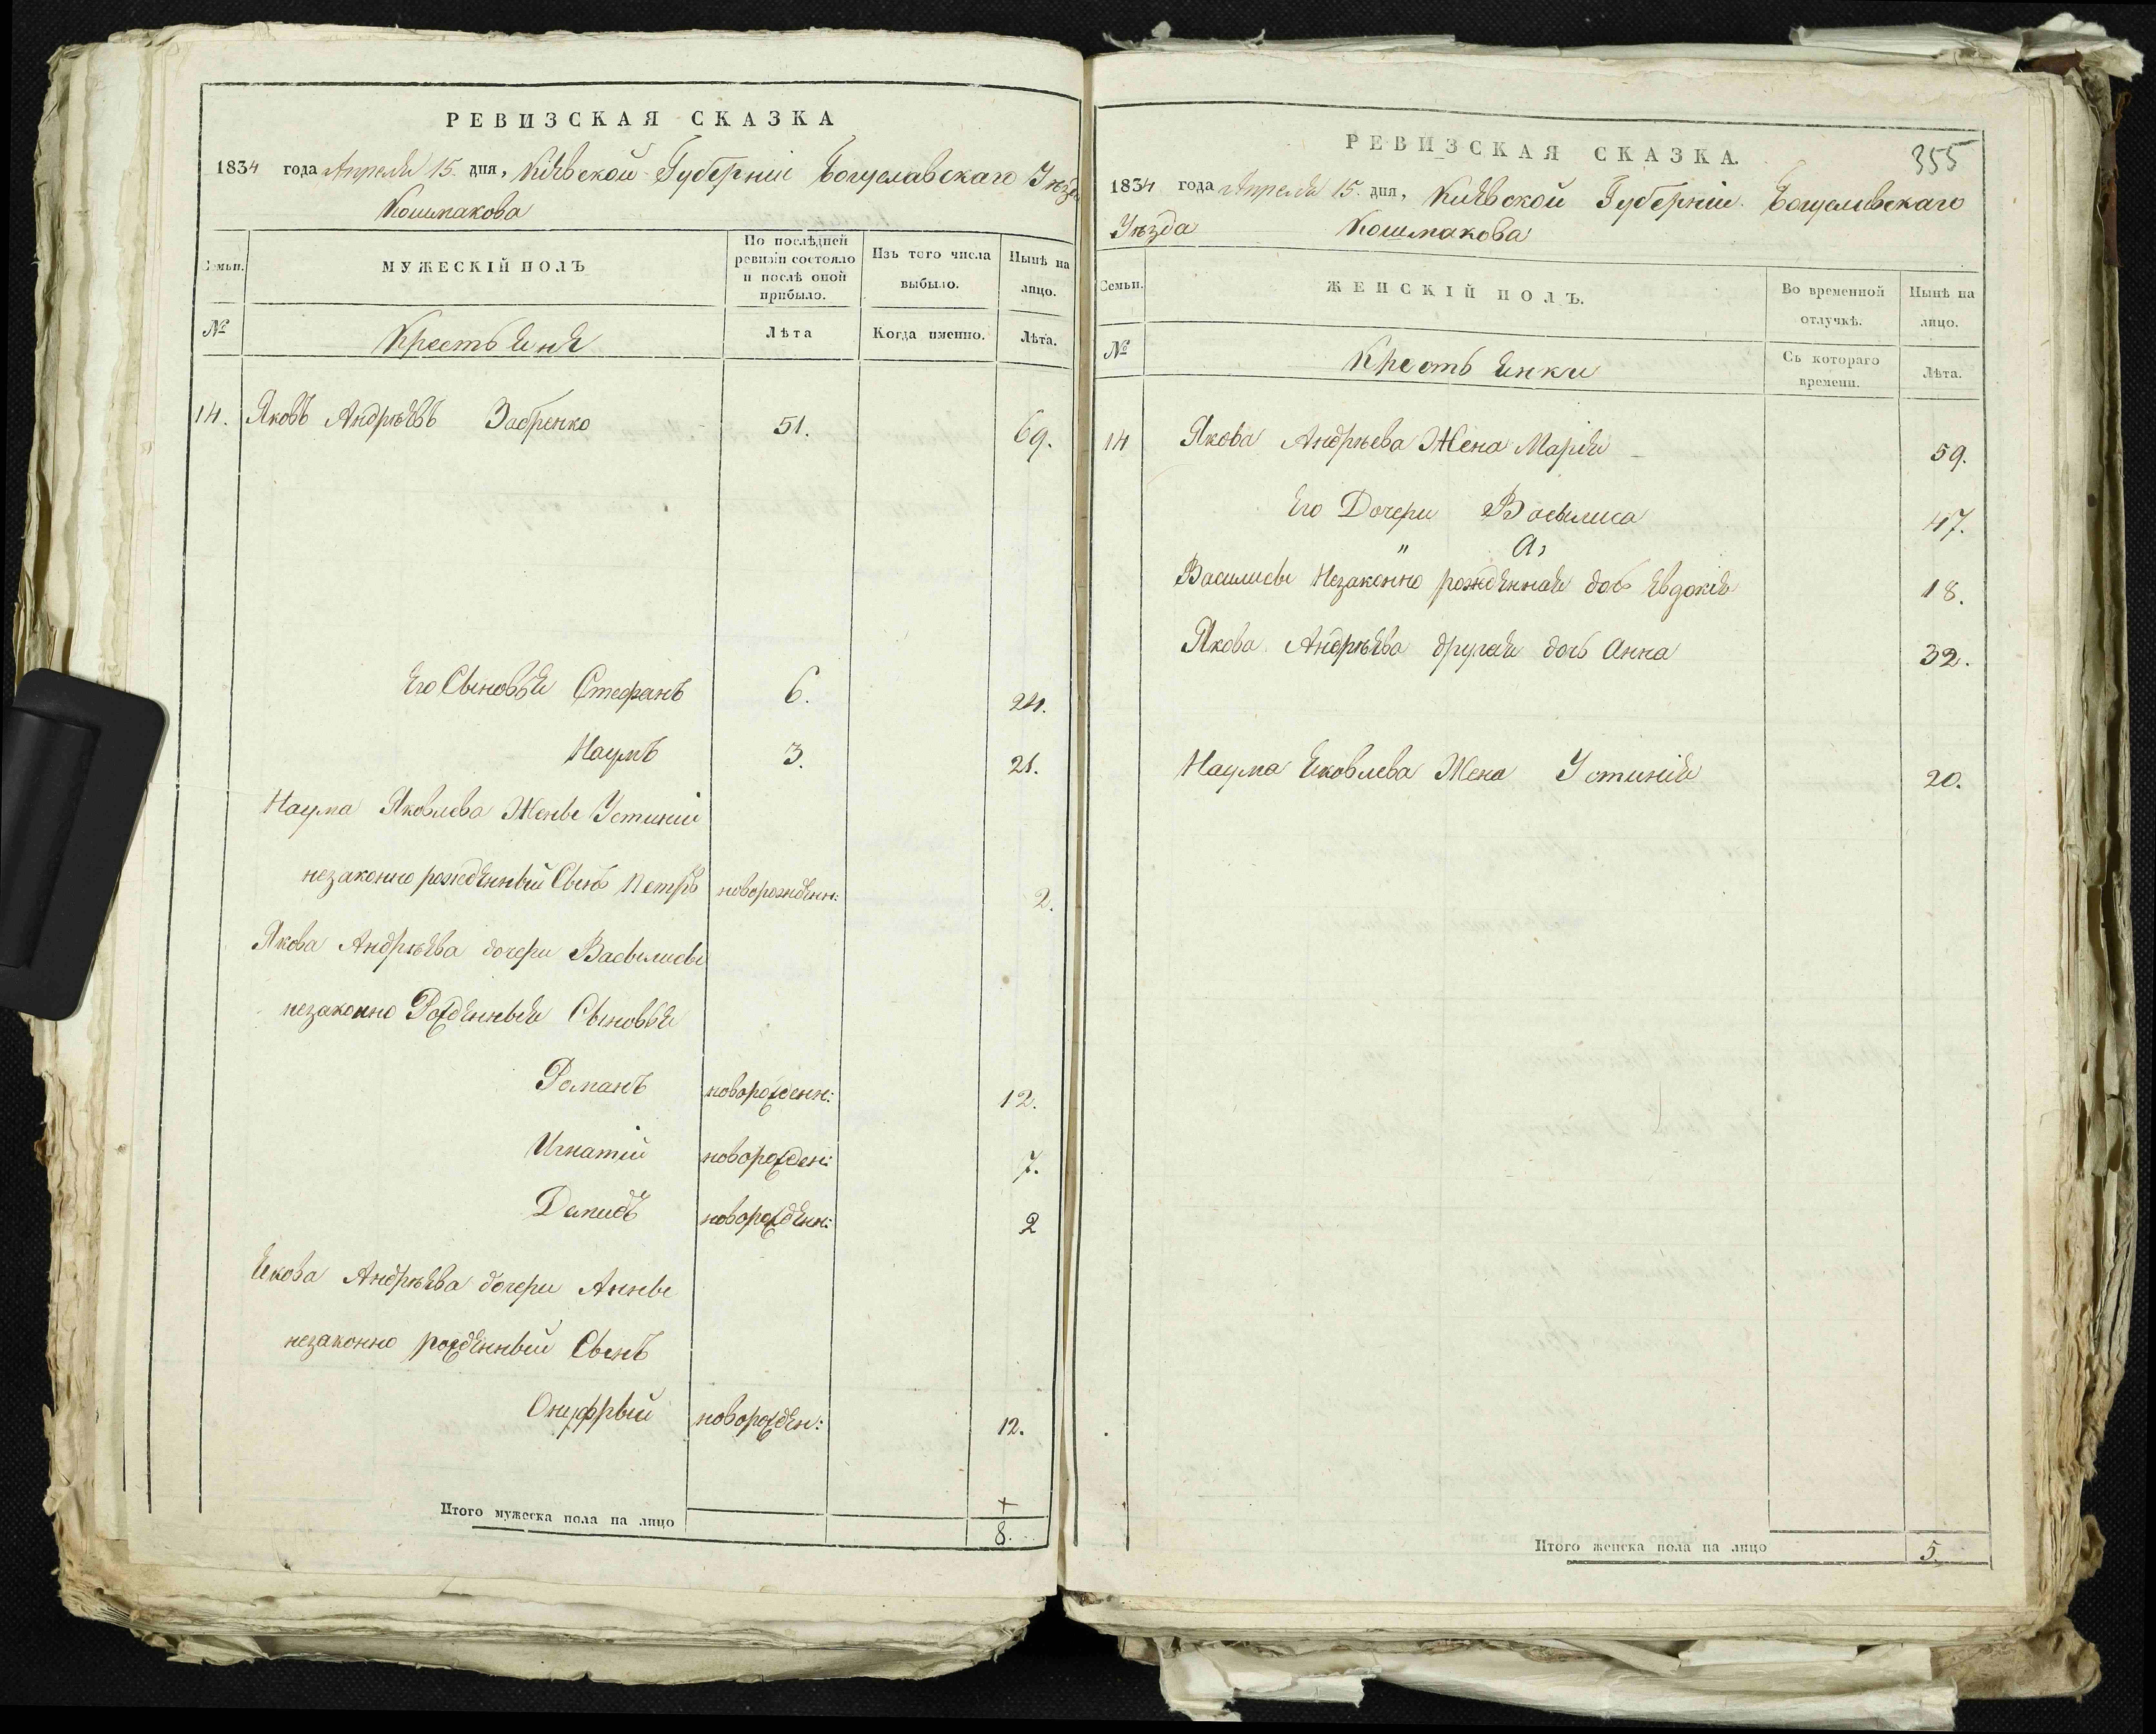 РЕВИЗСКАЯ СКАЗКА
1834 года Апреля 15. дня, Кіевской Губерніи Богуславскаго Уѣзда
Кошмакова
Семьи.
МУЖЕСКІЙ ПОЛЪ
По послѣдней ревизіи состояло и послѣ оной прибыло.
Изъ того числа выбыло.
Нынѣ на лицо.
№
Крестьяне
Лѣта
Когда именно.
Лѣта.
14. Яковъ Андрѣевъ Забренко 51. 69.
Его Сыновья Стефанъ 6. 24.
Наумъ 3. 21.
Наума Яковлева Жены Устиніи
незаконно рожденный Сынъ Петръ новорожденн: 2.
Якова Андрѣева дочери Васылисы
незаконно Рожденныя Сыновья
Романъ новорожденн: 12.
Игнатій новорожден: 7.
Демидъ новорожденн: 2
Якова Андрѣева дочери Анны
незаконно рожденный Сынъ
Онуфрый новорожден: 12.
+
Итого мужеска пола на лицо 8.
355
РЕВИЗСКАЯ СКАЗКА.
1834 года Апреля 15. дня, Кіевской Губерніи Богуславскаго
Уѣзда Кошмакова
Семьи.
ЖЕНСКІЙ ПОЛЪ.
Во временной отлучкѣ.
Нынѣ на лицо.
№
Крестьянки
Съ котораго времени.
Лѣта.
14 Якова Андрѣева Жена Марія 59.
Его Дочери Васылиса 47.
" а,
Василисы Незаконно рожденная дочь Явдокія 18.
Якова Андрѣева другая дочь Анна 32.
Наума Яковлева Жена Устинія 20.
Итого женска пола на лицо 5.